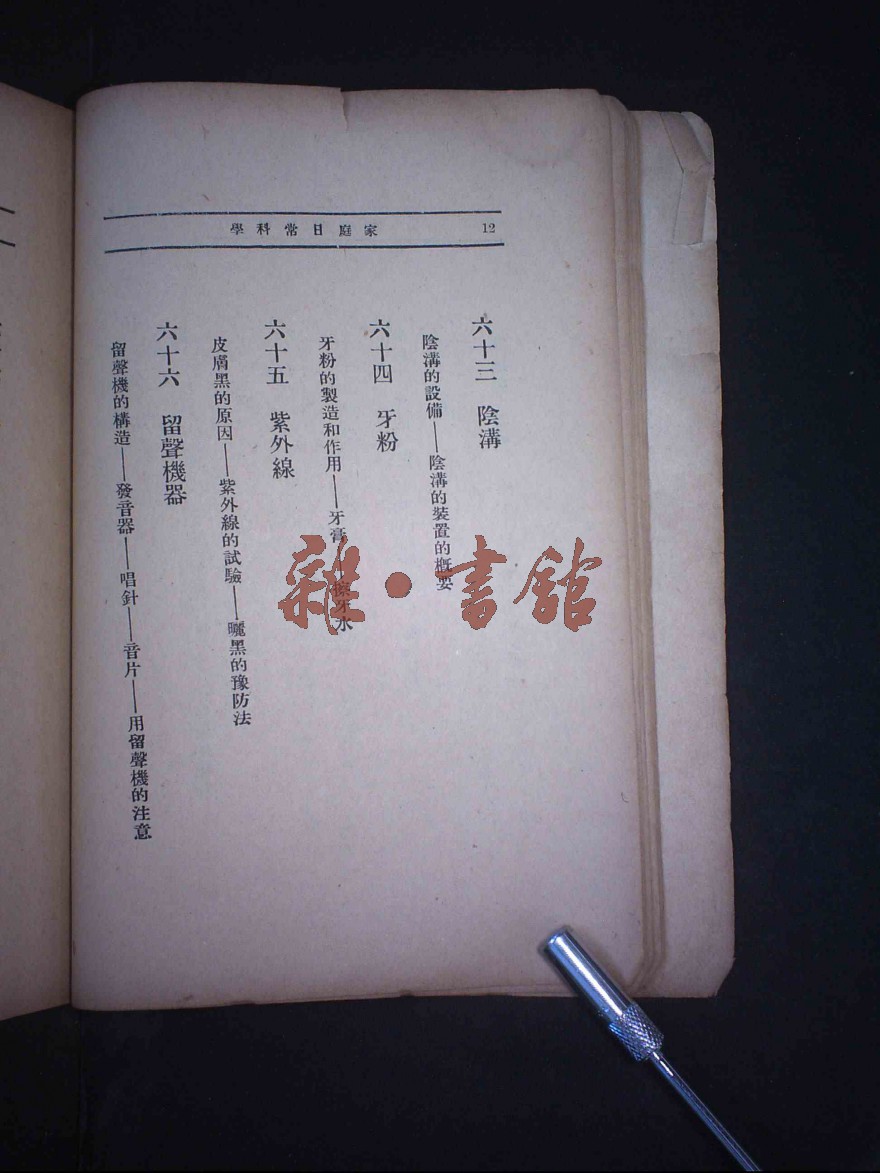 12
家庭日常科學
六十三 陰溝
陰溝的設備——陰溝的裝置的概要
六十四 牙粉
牙粉的製造和作用——牙膏——擦牙水
六十五 紫外線
皮膚黑的原因——紫外線的試驗——曬黑的豫防法
六十六 留聲機器
留聲機的構造——發音器——唱針——音片——用留聲機的注意
雜·書館